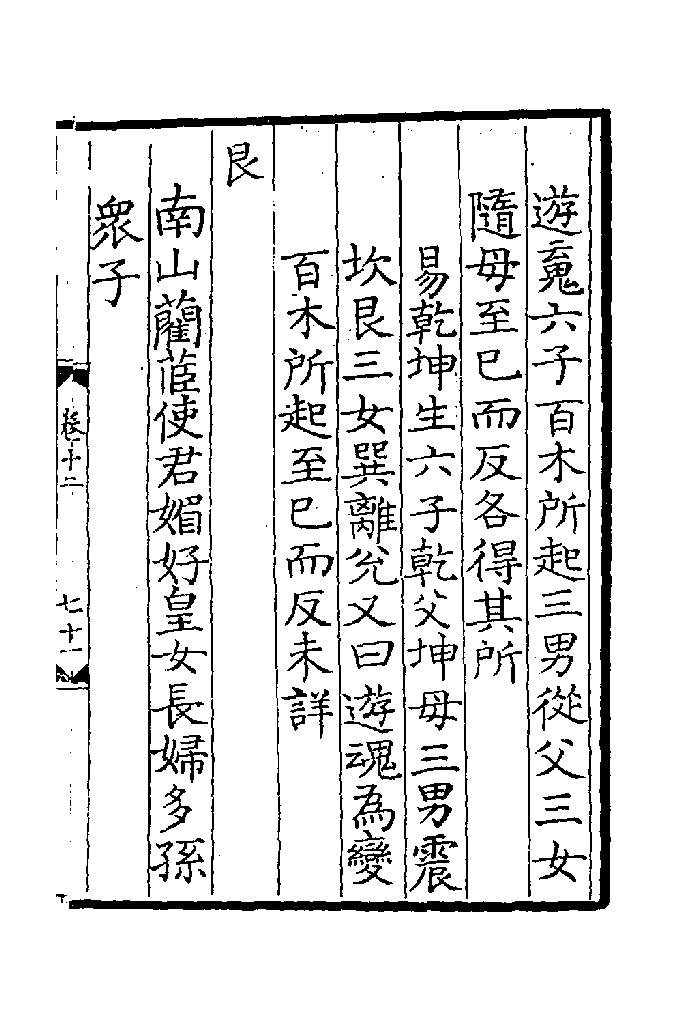 遊䰟六子百木所起三男從父三女
隨母至巳而反各得其所
易乾坤生六子乾父坤母三男震
坎艮三女巽離兊又曰遊魂為變
百木所起至巳而反未詳
艮
南山蘭茝使君媚好皇女長婦多孫
衆子
卷十二
七十一